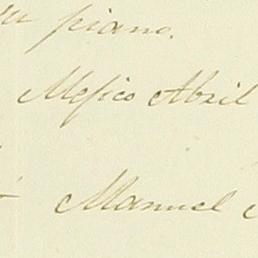 piano.
Mejico Abril
Manuel